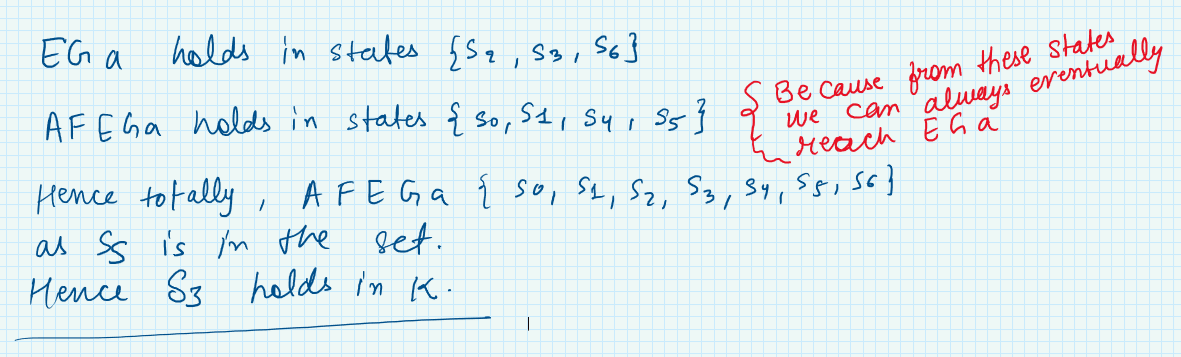 EG a holds in states {S2, S3, S6}
AFEGa holds in states {S0, S1, S4, S5}
{Because from these states
we can always eventually
reach EGa
Hence totally, AFEGa {S0, S1, S2, S3, S4, S5, S6}
as S5 is in the set.
Hence S3 holds in K.